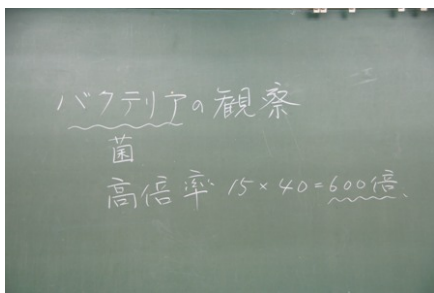 バクテリアの観察
菌
高倍率 15×40=600倍